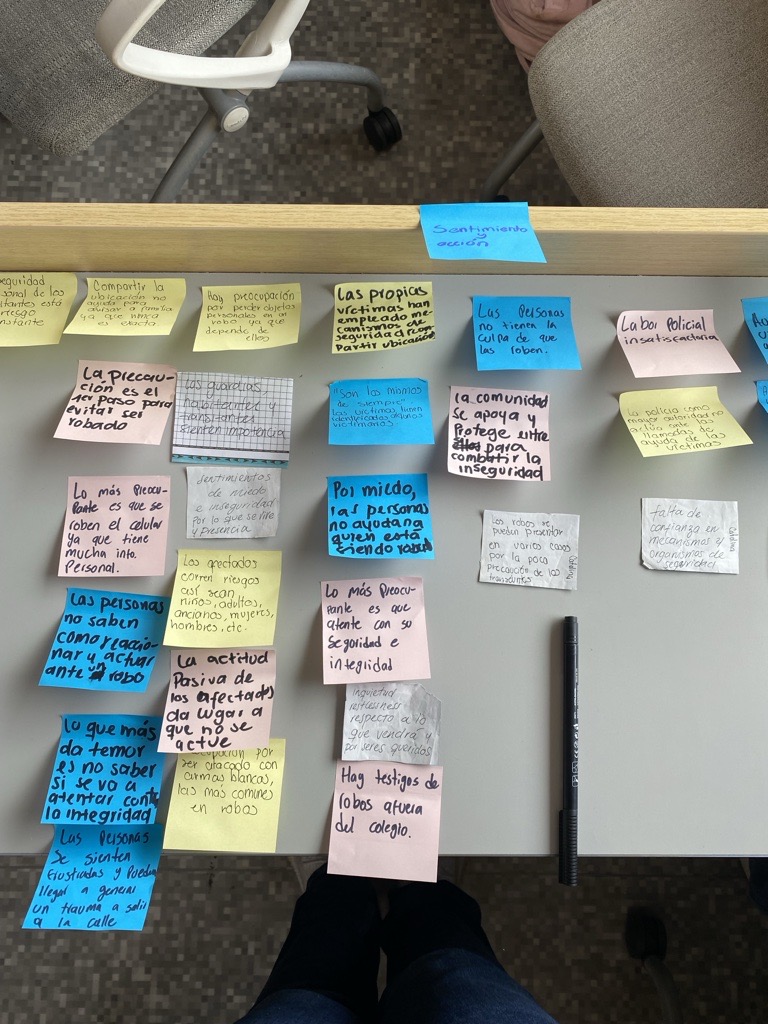 Sentimiento
y
acción
eguridad
sonal de los
itantes está
riesgo
nstante
Compartir la
ubicación no
ayuda para
avisar a familia
ya que nunca
es exacta.
Hay preocupación
por perder objetos
personales en el
robo ya que
depende de
ellos
Las propias
víctimas han
empleado me-
canismos de
seguridad: com-
partir ubicación
Las Personas
no tienen la
culpa de que
las roben.
Labor Policial
insatisfactoria
La precau-
ción es el
1er paso para
evitar ser
robado
Los guardias
habitantes y
transeuntes
sienten impotencia
"Son los mismos
de siempre"
las víctimas tienen
identificados a unos
victimarios.
La comunidad
se apoya y
Protege entre
ellos para
combatir la
inseguridad
La policía como
mayor autoridad no
actúa ante las
llamadas de
ayuda de las
víctimas
Lo más Preocu-
Pante es que se
roben el celular
ya que tiene
mucha info.
Personal.
Sentimientos
de miedo
e inseguridad
por lo que se vive
y presencia
Por miedo,
las personas
no ayudan a
quien está
siendo robado
Los robos se
pueden presentar
en varios casos
por la poca
precaución de los
transeúntes
falta de
confianza en
mecanismos y
organismos de
seguridad
Las personas
no saben
como reaccio-
nar y actuar
ante un robo
Los afectados
corren riesgos
así sean
niños, adultos,
ancianos, mujeres,
hombres, etc.
Lo más Preocu-
Pante es que
atente con su
Seguridad e
integridad
La actitud
Pasiva de
los afectados
da lugar a
que no se
actue
Inquietud
respecto a lo
que vendrá y
por seres queridos
Lo que más
da temor
es no saber
si se va a
atentar contra
la integridad
ocupación por
ser atacado con
armas blancas,
las más comunes
en robos
Hay testigos de
robos afuera
del colegio.
Las Personas
Se sienten
frustradas y Pueden
llegar a generar
un trauma a salir
a la calle